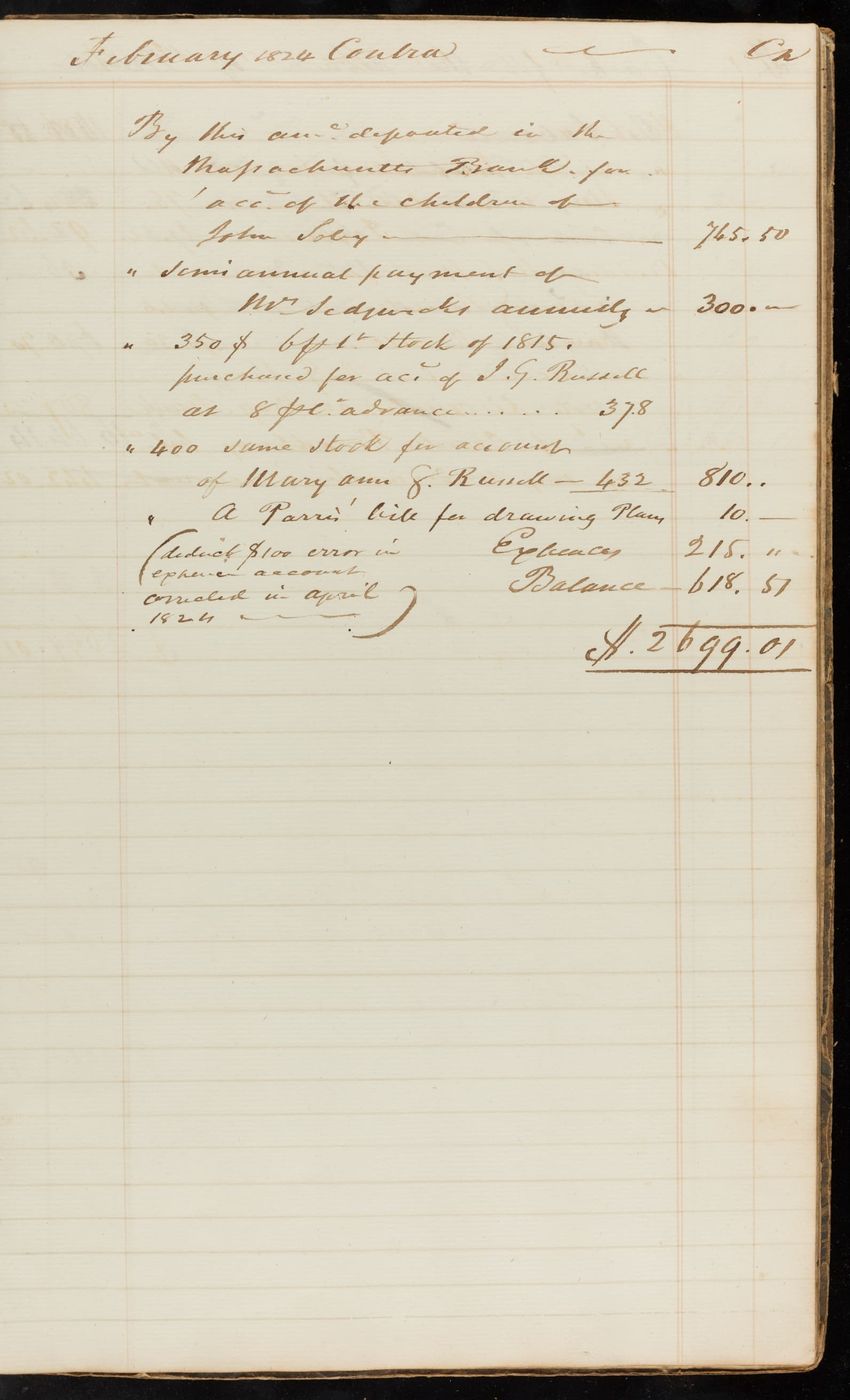 February 1824 Contra Cr
By this amo deposited in the
Massachusetts Bank for
acct. of the children of
John Soley 745.50
" Semiannual payment of
Mrs Sedgwicks annuity 300.—
" 350 $ 6 p Ct stock of 1815.
purchased for acct of J. G. Russell
at 8 p Ct advance....... 378
" 400 same stock for account
of Mary ann G. Russell — 432 810..
" A Parris' bill for drawing Plans 10.—
(deduct $100 error in Expences 215. "
expence account Balance — 618. 51
corrected in april
1824 )
$. 2699.01